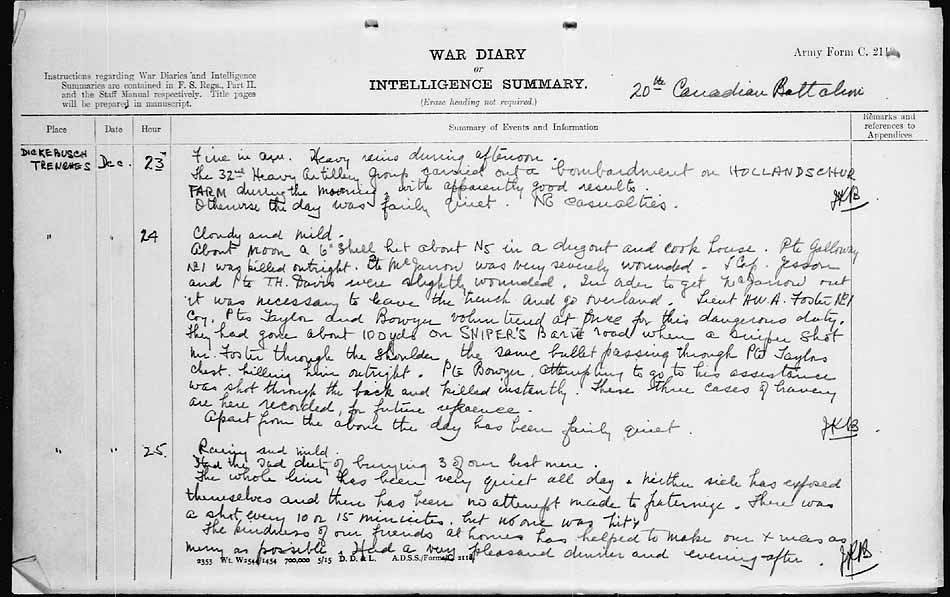 WAR DIARY
or
INTELLIGENCE SUMMARY.
(Erase heading not required.)
Army Form C. 211
Instructions regarding War Diaries and Intelligence
Summaries are contained in F. S. Regs., Part II.
and the Staff Manual respectively. Title pages
will be prepared in manuscript.
20th Canadian Battalion
Place Date Hour Summary of Events and Information Remarks and
references to
Appendices
DICKEBUSCH
TRENCHES Dec. 23 Fine in a.m. Heavy rains during afternoon.
The 32nd Heavy Artillery Group carried out a bombardment on HOLLANDSCHUR
FARM during the morning, with apparently good results.
Otherwise the day was fairly quiet. No casualties.
" . 24 Cloudy and mild.
About noon a 6" shell hit about N5 in a dugout and cook house. Pte Galloway
No1 was killed outright. Pte McJarrow was very severely wounded. Jesson
and Pte T.H. Davis were slightly wounded. In order to get McJarrow out
it was necessary to leave the trench and go overland. Lieut H.W.A. Foster No1
Coy, Ptes Taylor and Bowyer volunteered at once for this dangerous duty.
They had gone about 100 yds on SNIPER'S road when a sniper shot
Mr. Foster through the shoulder, the same bullet passing through Pte Taylors
chest, killing him outright. Pte Bowyer, attempting to go to his assistance
was shot through the back and killed instantly. These three cases of bravery
are here recorded, for future reference.
Apart from the above the day has been fairly quiet.
" " 25. Raining and mild.
Had the sad duty of burying 3 of our best men.
The whole line has been very quiet all day. Neither side has exposed
themselves and there has been no attempt made to fraternize. There was
a shot every 10 or 15 minutes, but no one was hit.
The kindness of our friends at home has helped to make our Xmas as
merry as possible. Had a very pleasant dinner and evening after.
2353 Wt. W2544/1454 700,000 5/15 D. D. & L. A.D.S.S./Forms/C. 2118.